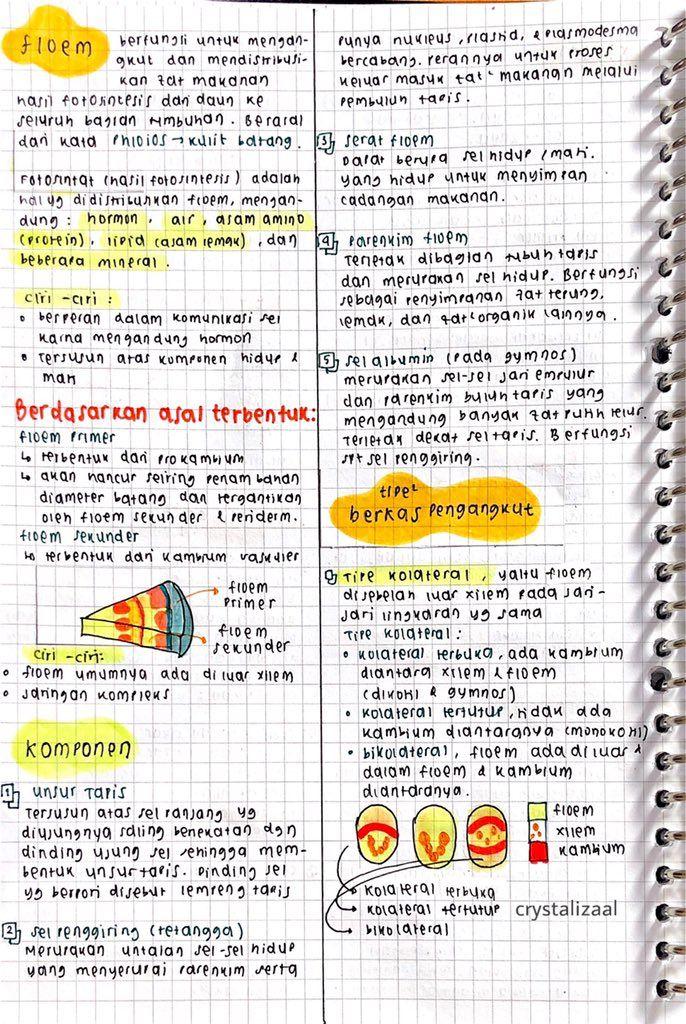 floem
berfungsi untuk mengang-
kut dan mendistribusi-
kan zat makanan
hasil fotosintesis dari daun ke
seluruh bagian tumbuhan. Berasal
dari kata phloios → kulit batang.
Fotosintat (hasil fotosintesis) adalah
hal yg didistribusikan floem, mengan-
dung : hormon, air, asam amino
(protein), lipid (asam lemak), dan
beberapa mineral.
ciri-ciri :
• berperan dalam komunikasi sel
karna mengandung hormon
• tersusun atas komponen hidup &
mati
Berdasarkan asal terbentuk:
floem primer
↳ terbentuk dari prokambium
↳ akan hancur seiring penambahan
diameter batang dan tergantikan
oleh floem sekunder & periderm.
floem sekunder
↳ terbentuk dari kambium vaskuler
floem
primer
floem
sekunder
ciri-ciri:
• floem umumnya ada di luar xilem
• jaringan kompleks
komponen
1 unsur tapis
Tersusun atas sel panjang yg
diujungnya saling berlekatan dgn
dinding ujung sel sehingga mem-
bentuk unsur tapis. Dinding sel
yg berpori disebut lempeng tapis
2 sel pengiring (tetangga)
Merupakan untaian sel-sel hidup
yang menyerupai parenkim serta
punya nukleus, plastid, & plasmodesma
bercabang. perannya untuk proses
keluar masuk zat² makanan melalui
pembuluh tapis.
3 serat floem
Dapat berupa sel hidup/mati.
yang hidup untuk menyimpan
cadangan makanan.
4 parenkim floem
Terletak dibagian buluh tapis
dan merupakan sel hidup. Berfungsi
sebagai penyimpanan zat tepung,
lemak, dan zat² organik lainnya.
5 sel albumin (pada gymnos)
merupakan sel-sel jari empulur
dan parenkim buluh tapis yang
mengandung banyak zat putih telur.
Terletak dekat sel tapis. Berfungsi
spt sel pengiring.
tipe²
berkas pengangkut
Tipe kolateral, yaitu floem
disebelah luar xilem pada jari-
jari lingkaran yg sama
Tipe kolateral :
• kolateral terbuka, ada kambium
diantara xilem & floem
(dikoti & gymnos)
• kolateral tertutup, tidak ada
kambium diantaranya (monokoti)
• bikolateral, floem ada di luar &
dalam floem & kambium
diantaranya.
floem
xilem
kambium
kolateral terbuka
kolateral tertutup
bikolateral
crystalizaal